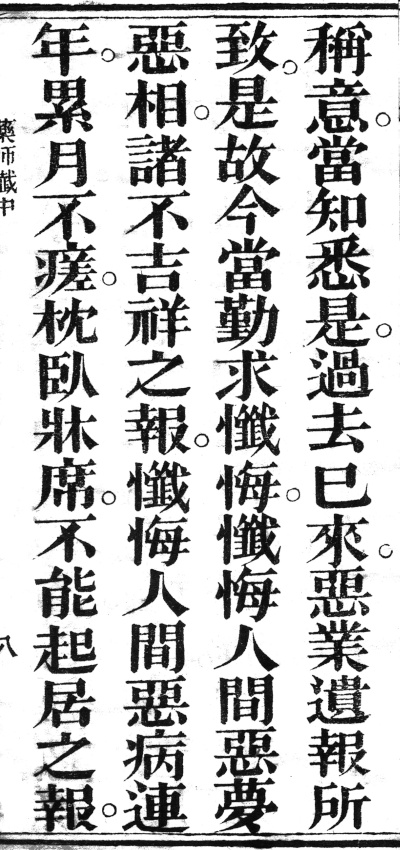 稱意。當知悉是。過去已來。惡業遺報所
致。是故今當勤求懺悔。懺悔人間惡夢
惡相。諸不吉祥之報。懺悔人間惡病連
年。累月不瘥。枕臥牀席。不能起居之報。
藥師懺中 八